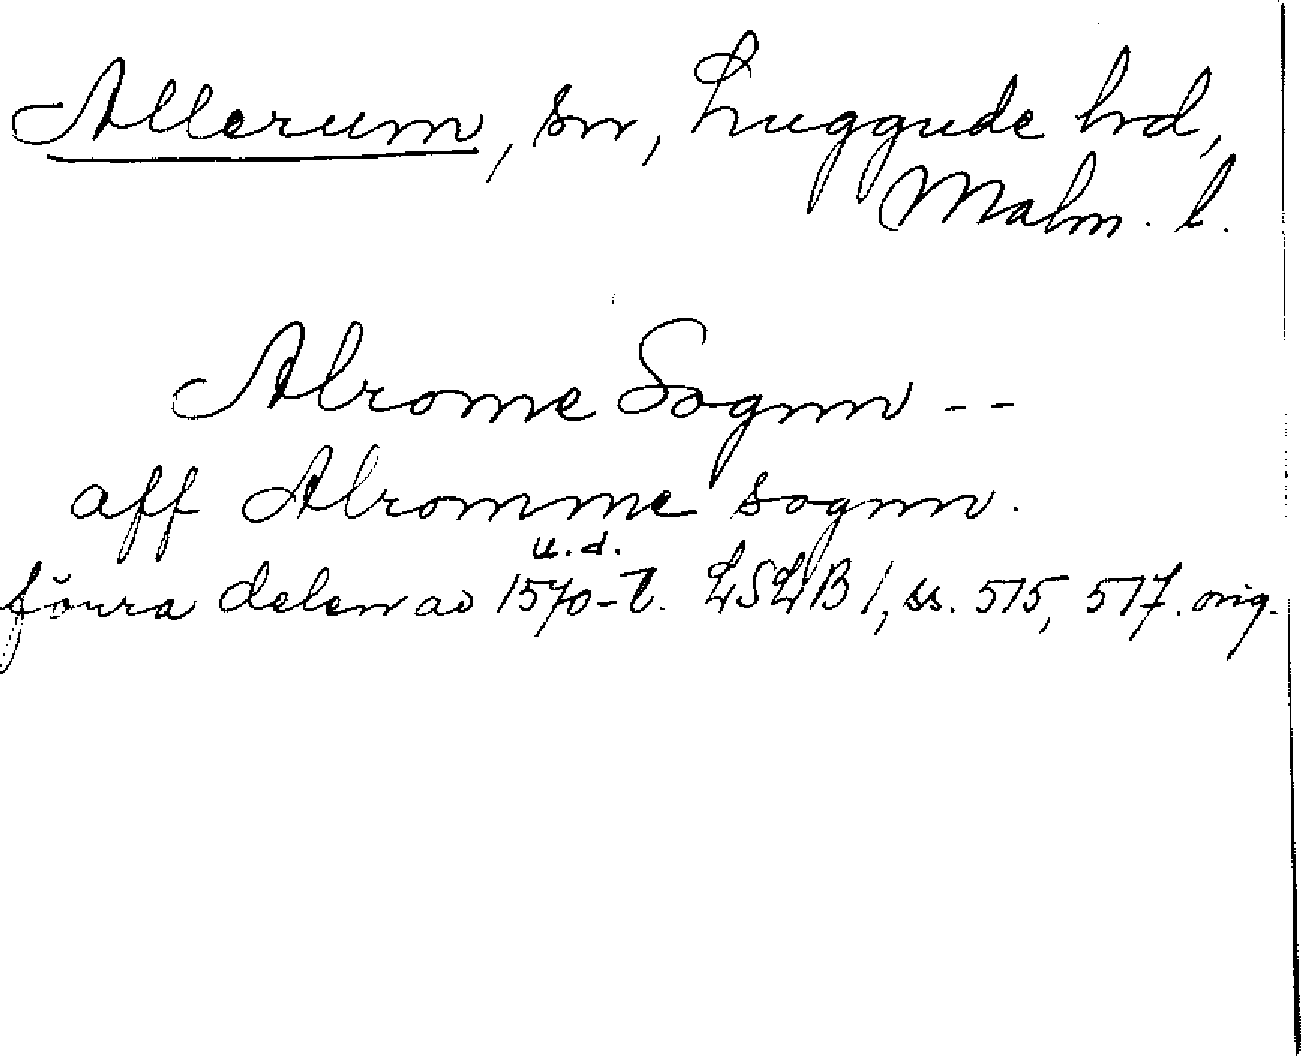 Allerum, sn, Luggude hd,
Malm. l.
Alrome Sognn --
aff Alromme sognn.
u. d.
förra delen av 1570-t. LSLB 1, ss. 515, 517. orig.